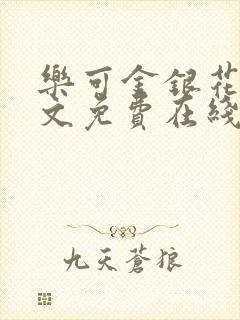 樂可金銀花
文免費在綫
九天蒼狼